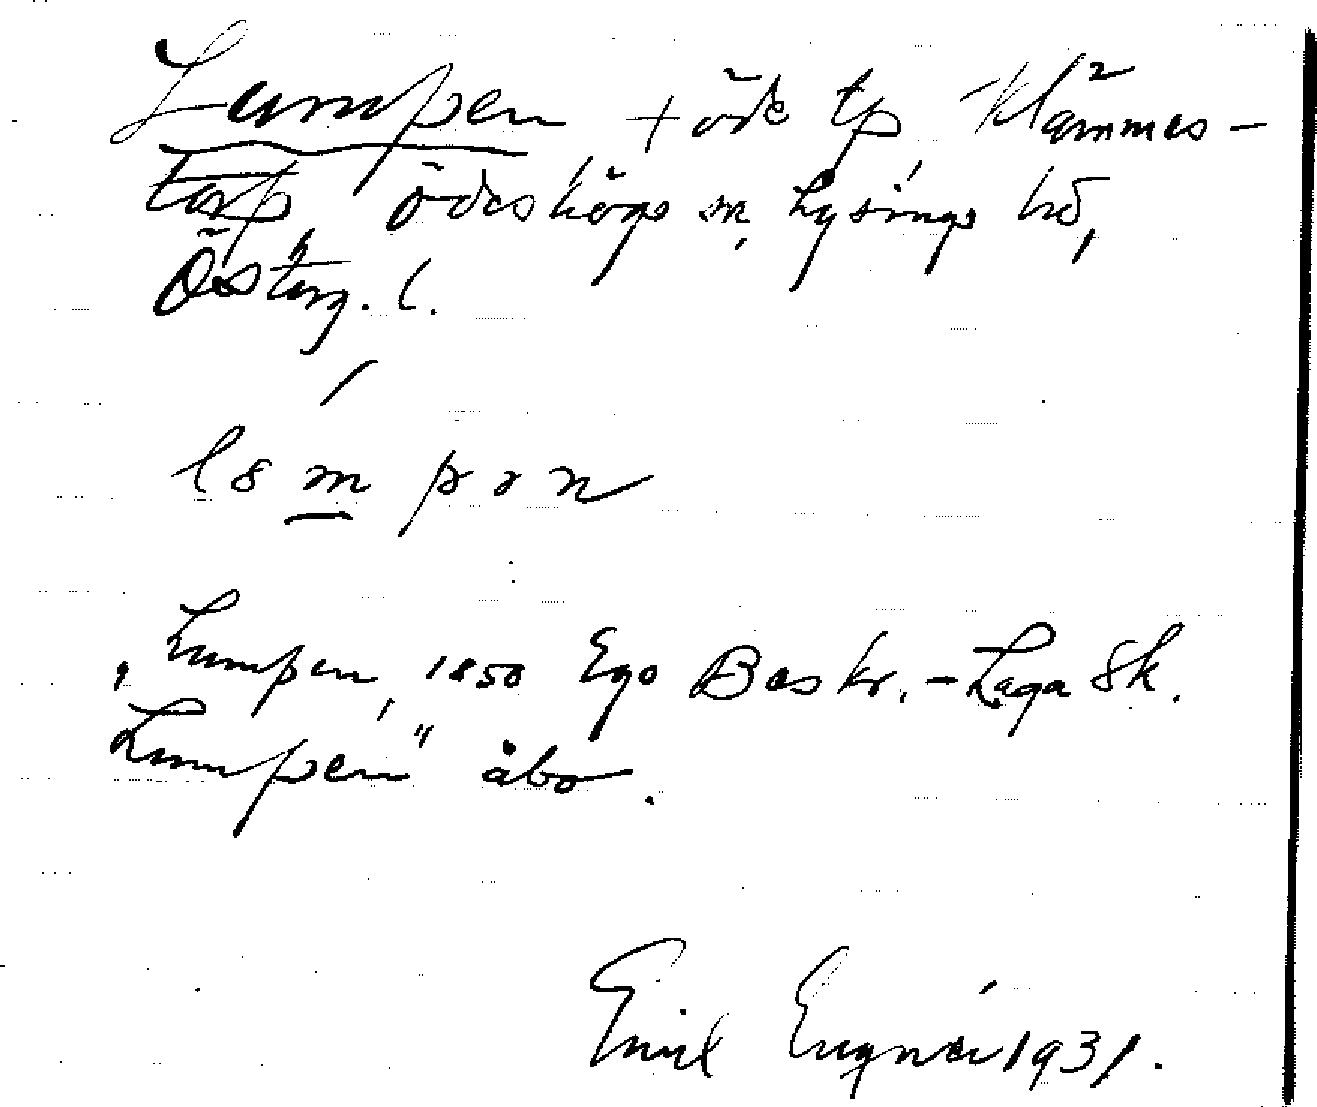 Lumpen + öde tp Klämmes-
torp Ödeshögs sn, Lysings hd,
Österg. l.
l8mpən
"Lumpen, 1850 Ego Beskr. - Laga Sk.
Lumpen" åbo.
Emil Engnér 1931.